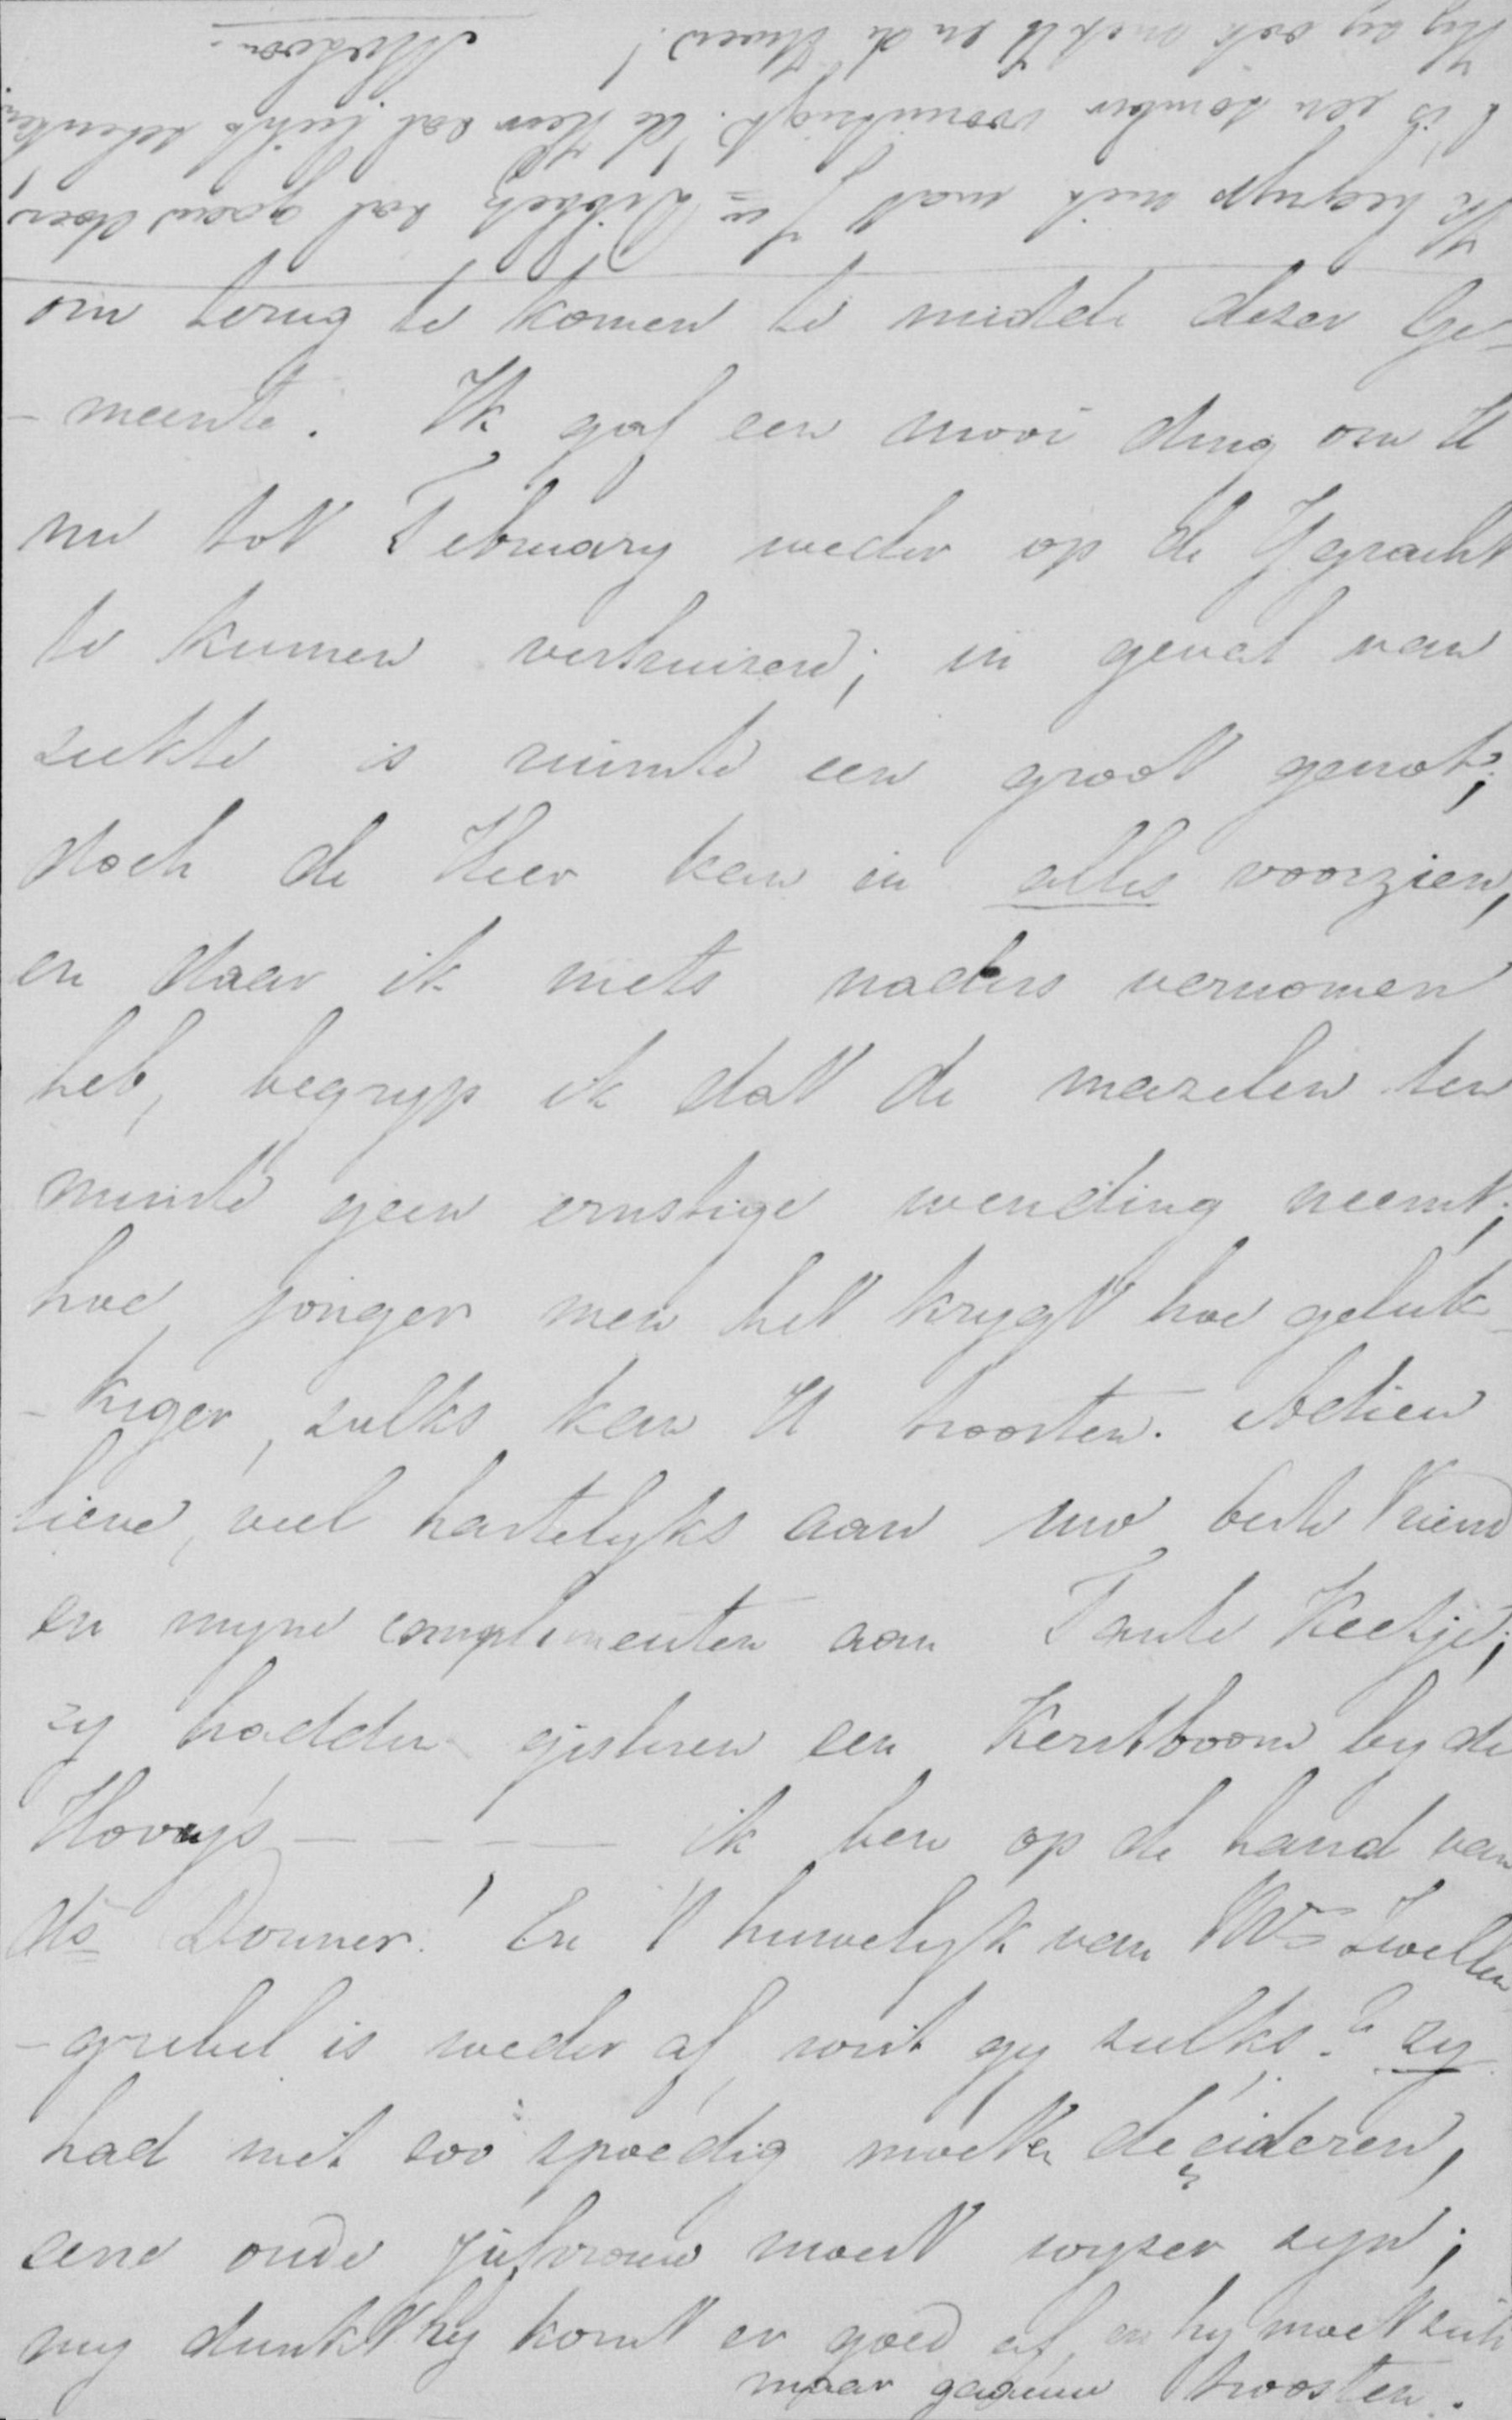 om terug te komen te midde dezer Ge-
-meente. Ik gaf een mooi ding om U
nu tot February weder op de Hgracht
te kunnen verhuizen; in geval van
ziekte is ruimte een groot genot;
doch de Heer kan in alles voorzien,
en daar ik niets naders vernomen
heb, begryp ik dat de mazelen ten
minste geen ernstige wending neemt;
hoe jonger men het krygt hoe geluk-
-kiger, zulks kan U troosten. Adieu
lieve, veel hartelyks aan uw beste Vriend
en myne complimenten aan Tante Keetje;
zy hadden gisteren een Kerstboom by de
Hovy's - - - - ik ben op de hand van
ds Donner! En 't huwelyk van Mr Zwellen
-grebel is weder af, wist gy zulks? zy
had niet zoo spoedig moeten deçideren,
eene oude jufvrouw moest wyzer zyn;
my dunkt hy komt er goed af, en hy moet zich
maar troosten.
Ik begryp niet wat Ju Dibbetz zal gaan doen,
't is een somber vooruitzigt. de Heer zal licht schenken.
Hy zy ook met U en de Uwen!